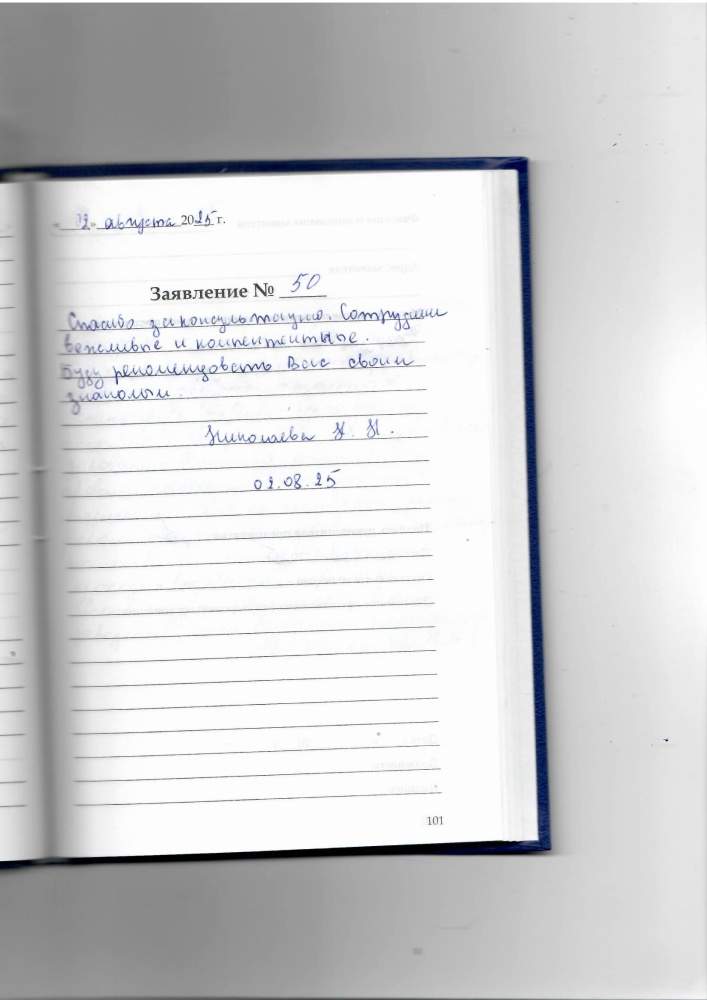 «02» августа 2025 г.
Заявление № 50
Спасибо за консультацию. Сотрудники
вежливые и компетентные.
Буду рекомендовать Вас своим
знакомым.
Николаева Н. Н.
02.08.25
101